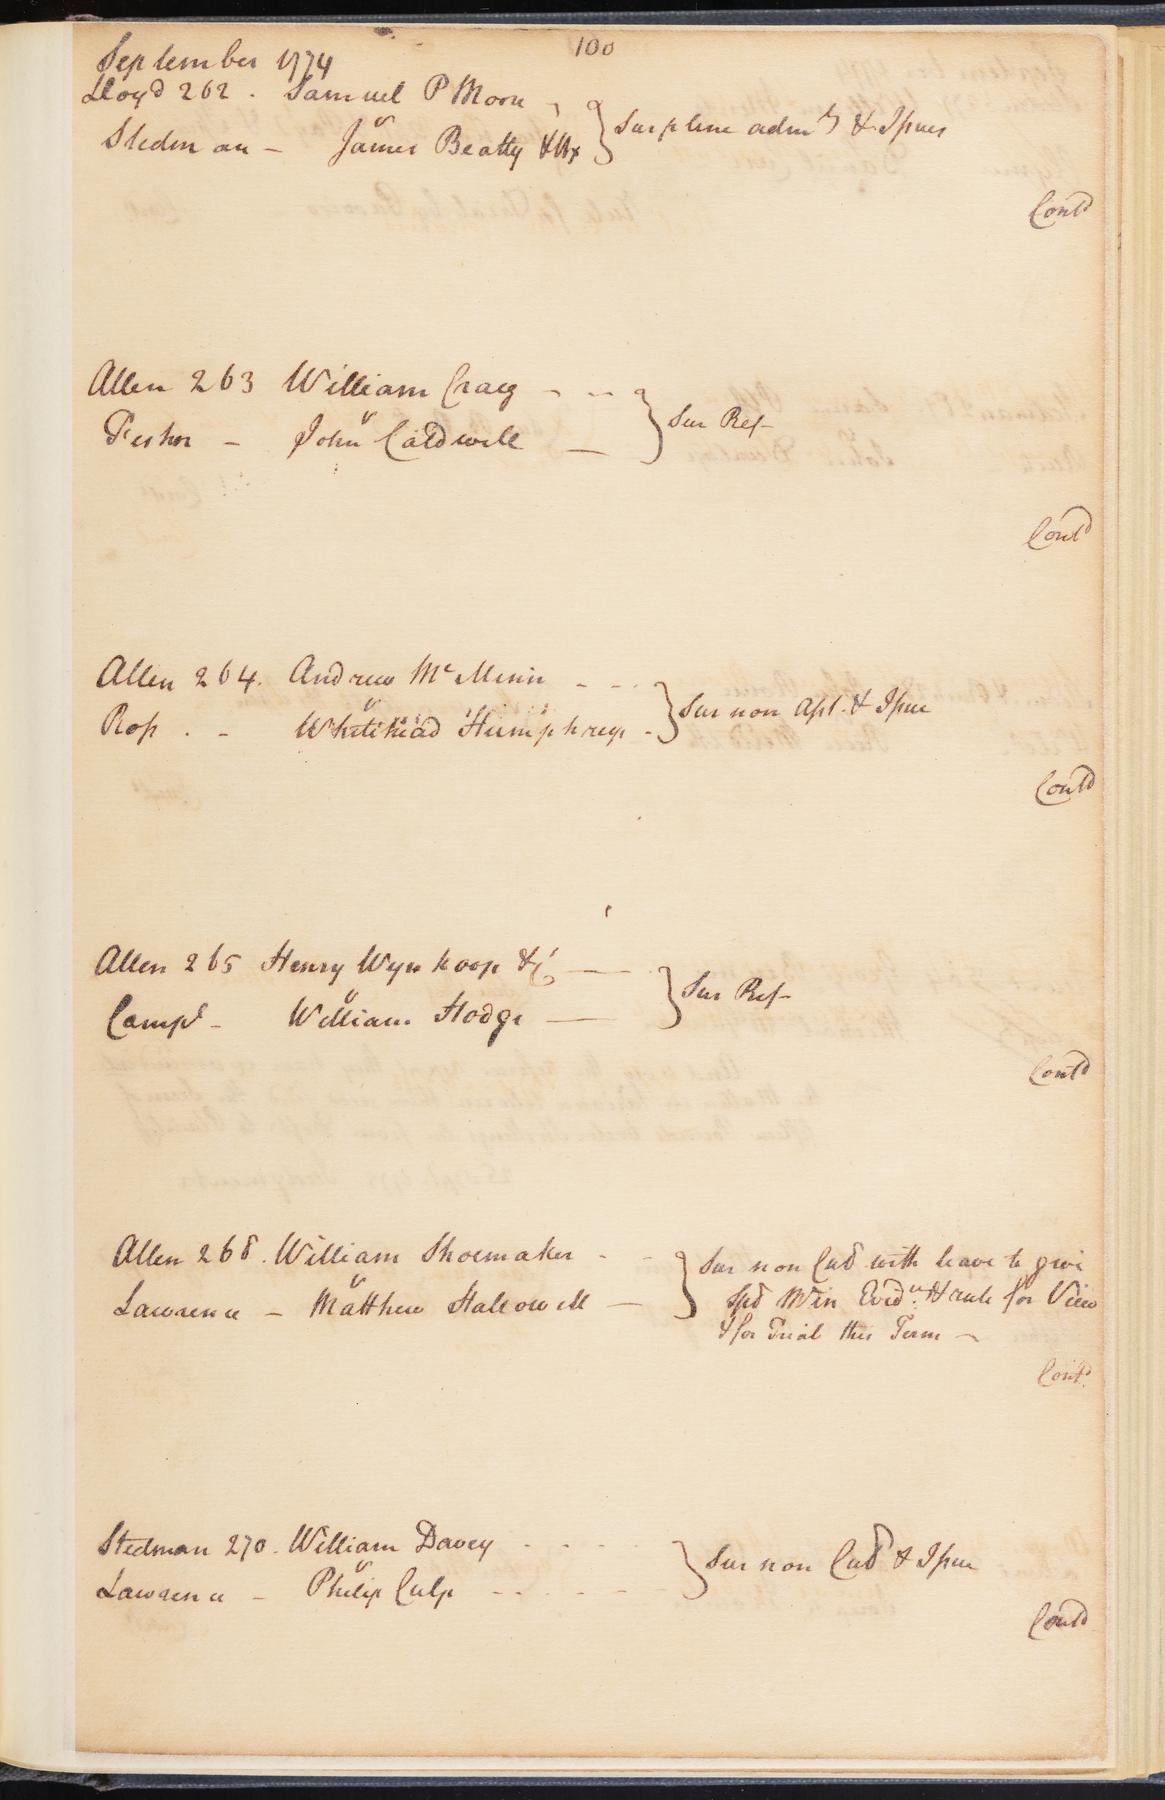 100
September 1774
Lloyd 262 . Samuel P Moore
Stedman – James Beatty & Ux } Sur plene admr & Issues
Contd
Allen 263 William Craig - - -
v
– John Caldwell — } Sur Ref–
Contd
Allen 264. Andrew Mc Minn - - -
v
Ross . - Whitehead Humphreys - } Sur non Asst. & Issue
Contd
Allen 265 Henry Wynkoop &c —
v
Campl - William Hodge — } Sur Ref–
Contd
Allen 268. William Shoemaker - - } Sur non Cul with leave to give
v
Lawrence – Matthew Hallowell — Spl Mr in Evidce. & rule for View
& for Trial this Term –
Cont.
Stedman 270. William Davey - - - -
v
Lawrence – Philip Culp - - - - - } Sur non Cul & Issue
Contd